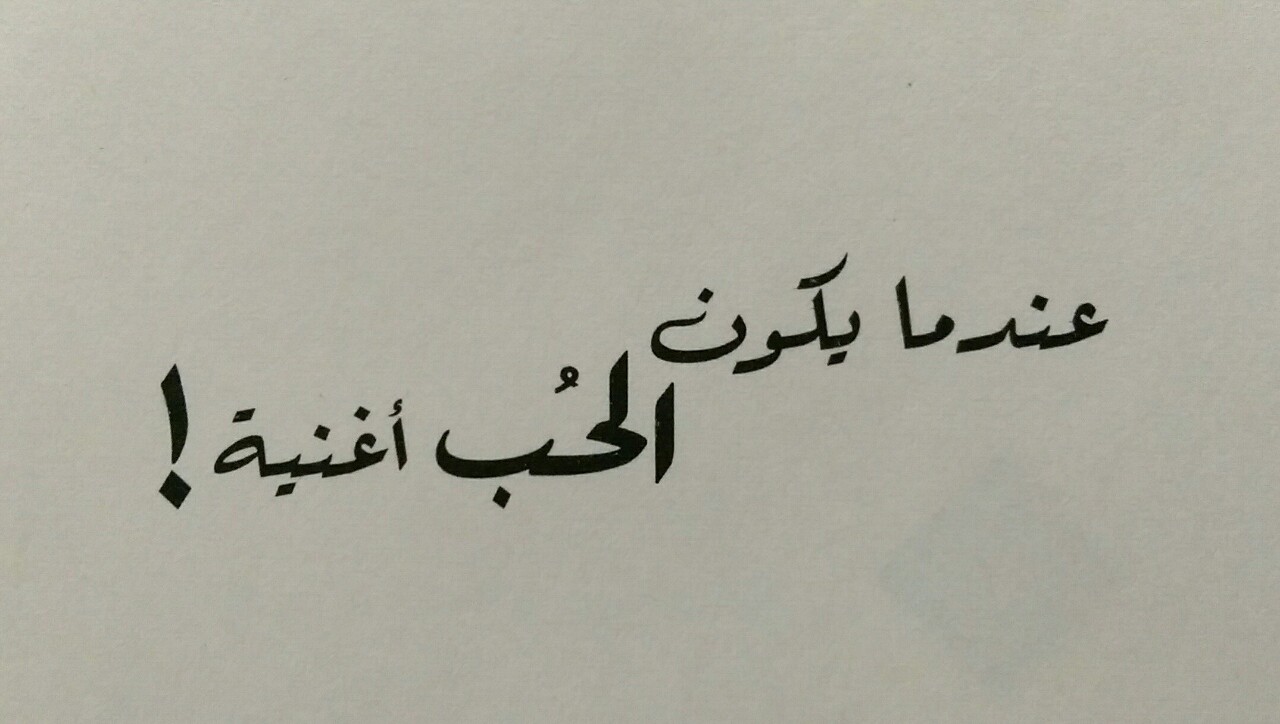 عندما يكون
الحُب أغنية !